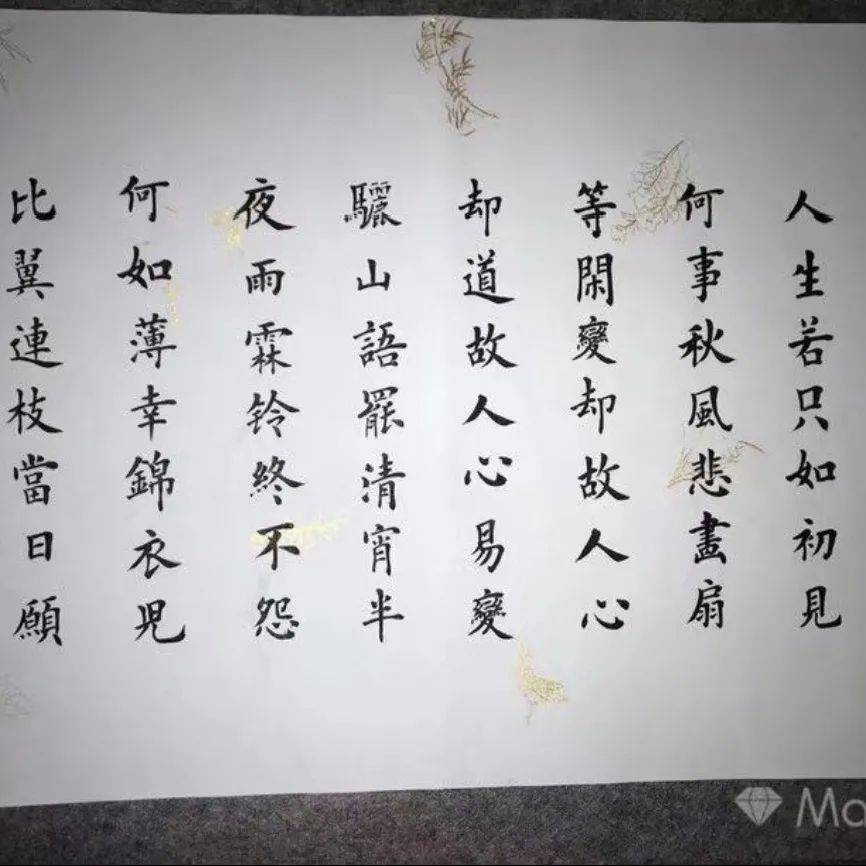 人生若只如初見
何事秋風悲畫扇
等閑變却故人心
却道故人心易變
驪山語罷清宵半
夜雨霖铃終不怨
何如薄幸錦衣児
比翼連枝當日願
Ma